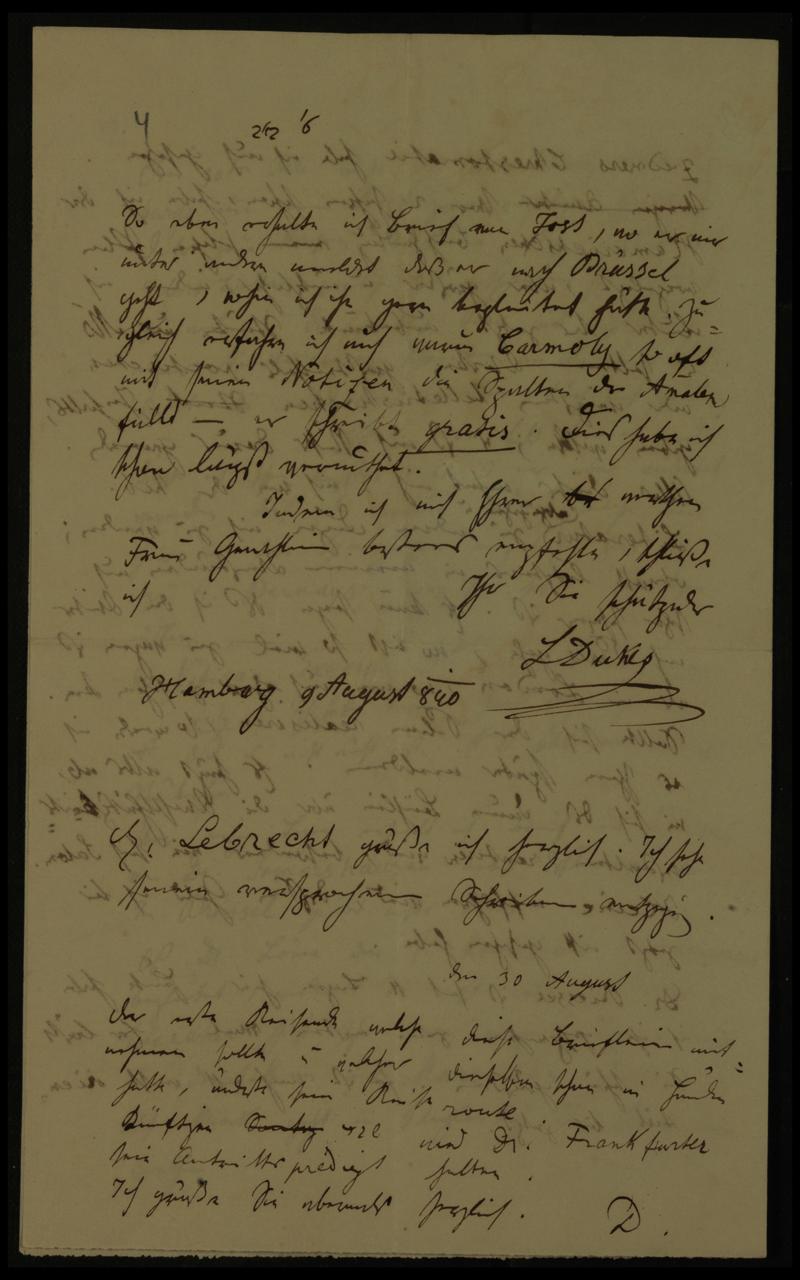 4
262 1/6
So eben erhalte ich Brief von Jost, wo er mir
unter andern meldet daß er nach Brüssel
geht, wohin ich ihn gern begleitet hätte. Zu=
gleich erfahre ich auch warum Carmoly so oft
mit seinen Notizen die Spalten der Analen
füllt — er schreibt gratis. Dies habe ich
schon längst vermuthet.
Indem ich mich Ihrer werthen
Frau Gemahlin bestens empfehle, schließe
ich Ihr Sie schätzender
L Dukes
Hamburg 9 August 840
H. Lebrecht grüße ich herzlich. Ich sehe
seinem versprochenen Schreiben entgegen.
den 30 August
Der erste Reisende welcher diese Brieflein mit=
nehmen sollte u welcher dieselben schon in Händen
hatte, änderte seine Reiseroute.
Künftigen wird Dr. Frankfurter
seine Antrittspredigt halten.
Ich grüße Sie abermals herzlich. D.